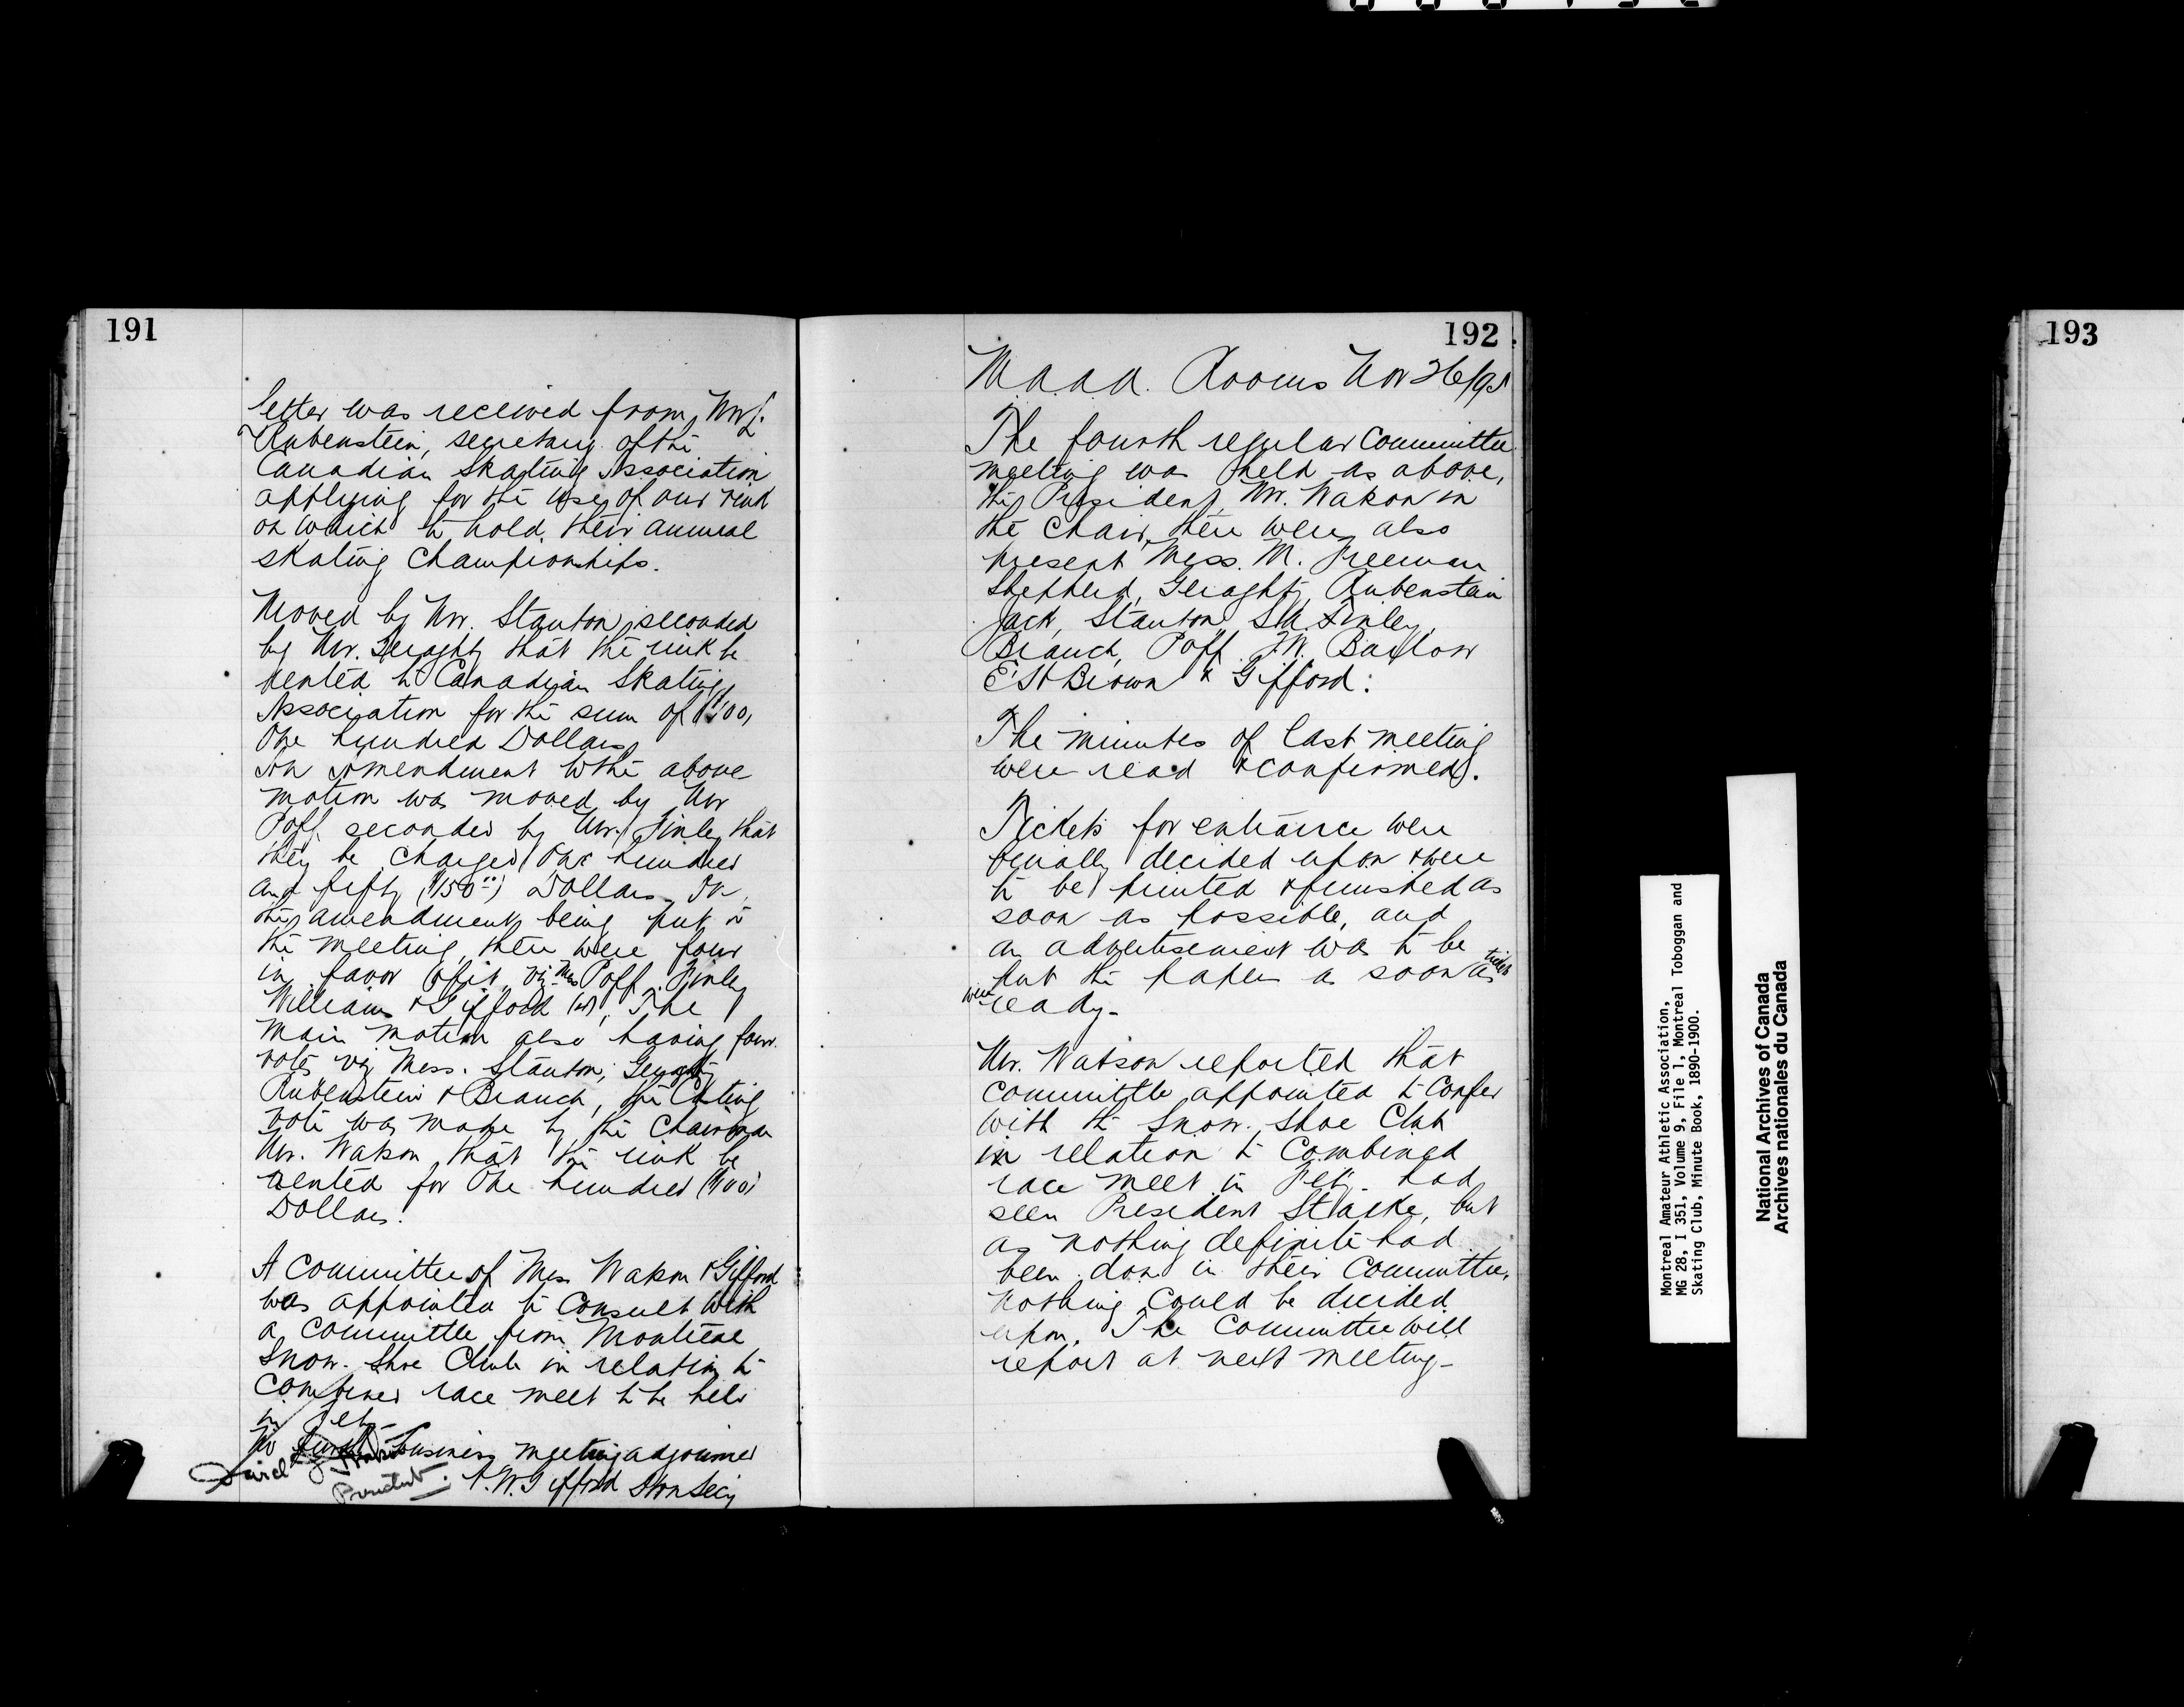 191
letter was received from Mr L.
Rubenstein, secretary of the
Canadian Skating Association
applying for the use of our rink
on which to hold their annual
skating Championships.
Moved by Mr. Stanton, seconded
by Mr. Geraghty that the rink be
rented to Canadian Skating
Association for the sum of $100,
One hundred Dollars
An Amendment to the above
motion was moved by Mr
Poff seconded by Mr. Finley that
they be charged One hundred
and fifty ($150.00) Dollars. On
the amendment being put to
the meeting, there were four
in favor of it, viz Mess Poff, Finley
Williams & Gifford (4), The
main motion also having four
votes viz Mess. Stanton, Geraghty
Rubenstein & Branch, the Casting
vote was made by the Chairman
Mr. Watson, that the rink be
rented for One hundred ($100)
Dollars.
A Committee of Mess Watson & Gifford
was appointed to Consult with
a Committee from Montreal
Snow-Shoe Club in relation to
Combined race meet to be held
in Feby-
No further business meeting adjourned
President. A.W. Gifford Hon Secy
192
M.A.A.A. Rooms Nov 26/95
The fourth regular Committee
meeting was held as above,
the President, Mr. Watson in
the Chair, there were also
present Mess. M. Freeman
Shepherd, Geraghty, Rubenstein
Jack, Stanton, Finley,
Branch, Poff, Barlow
Brown & Gifford:
The minutes of last meeting
were read & confirmed.
Tickets for entrance were
finally decided upon & were
to be printed & finished as
soon as possible, and
an advertisement was to be
put in papers as soon as tickets
were ready-
Mr. Watson reported that
committee appointed to Confer
with the Snow-Shoe Club
in relation to Combined
race meet in Feby- had
seen President Starke, but
as nothing definite had
been done in their Committee,
nothing could be decided
upon. The Committee will
report at next meeting-
193
Montreal Amateur Athletic Association,
MG 28, I 351, Volume 9, File 1, Montreal Toboggan and
Skating Club, Minute Book, 1890-1900.
National Archives of Canada
Archives nationales du Canada